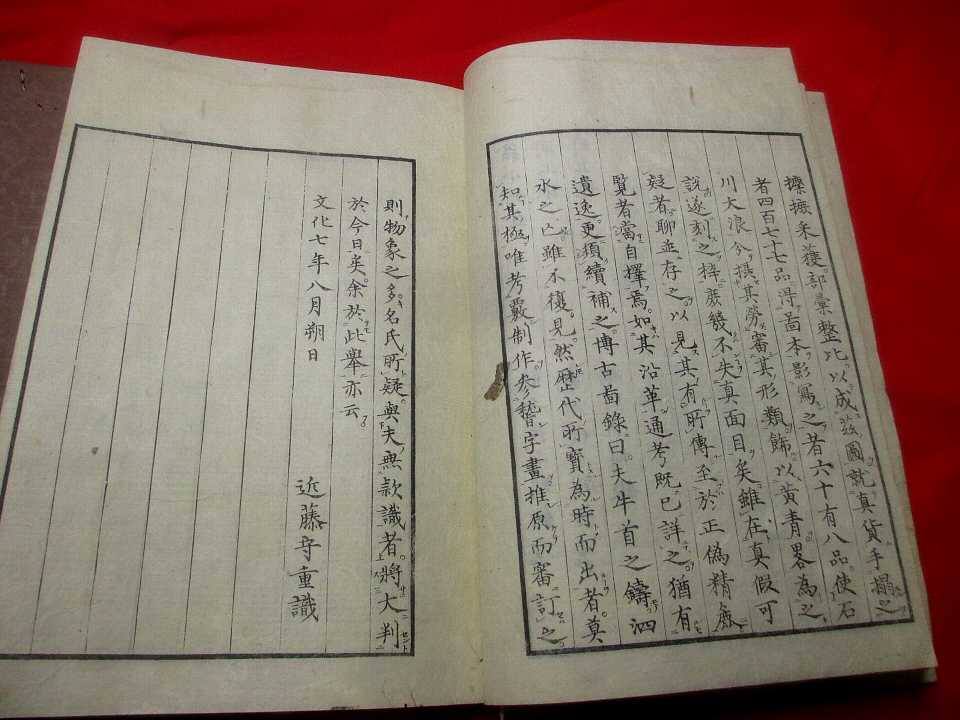 摭采獲部彙整比以成茲圖就真貨手搨之
者四百七十七品得啚本影寫之者六十有八品使石
川大浪分撰其勞審其形類飾以黄青畧為之
說遂刻之梓庶幾不失真面目矣雖在真假可
疑者聊並存之以見其有所傳至於正偽精麁
覧者當自擇焉如其沿革通考既已詳之猶有
遺逸更須續補之博古啚錄曰夫牛首之鑄泗
水之亡雖不復見然歴代所寳為時而出者莫
知其極唯考覈制作参字畫推原而審訂之
則物象之多名氏所疑與夫無款識者將大判
於今日矣余於此舉亦云
文化七年八月朔日
近藤守重識